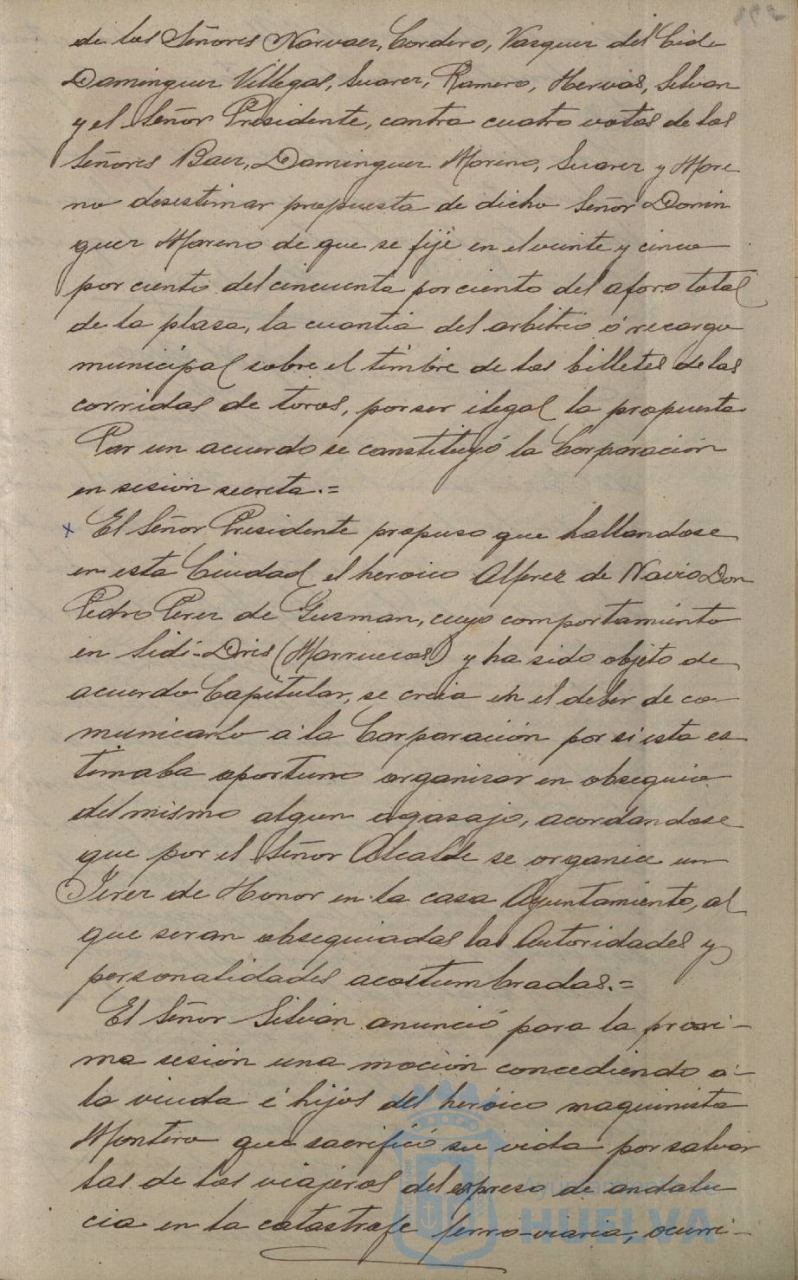 de los Señores Narvaez, Cordero, Vazquez del Cid
Dominguez Villegas, Suarez, Ramero, Hervás, Silvan
y el Señor Presidente, contra cuatro votos de los
Señores Baez, Dominguez Moreno, Suarez y More
no desestimar propuesta de dicho Señor Domin
guez Moreno de que se fije en el veinte y cinco
por ciento del cincuenta por ciento del aforo total
de la plaza, la cuantia del arbitrio ó recargo
municipal sobre el timbre de los billetes de las
corridas de toros, por ser ilegal la propuesta
Por un acuerdo se constituyó la Corporación
en sesión secreta.=
x El Señor Presidente propuso que hallandose
en esta Ciudad el heroico Alferez de Navio Don
Pedro Perez de Guzman, cuyo comportamiento
en Sidi-Dris (Marruecos) y ha sido objeto de
acuerdo Capitular, se creia en el deber de co-
municarlo a la Corporación por si esta es
timaba oportuno organizar en obsequio
del mismo algun agasajo, acordandose
que por el Señor Alcalde se organice un
Jerez de Honor en la casa Ayuntamiento, al
que seran obsequiadas las Autoridades y
personalidades acostumbradas.=
El Señor Silván anunció para la proxi-
ma sesión una moción concediendo á-
la viuda é hijos del heróico maquinista
Montero que sacrificó su vida por salvar
las de los viajeros del expreso de andalu
cia en la catastrofe ferro-viaria, ocurri-
HUELVA